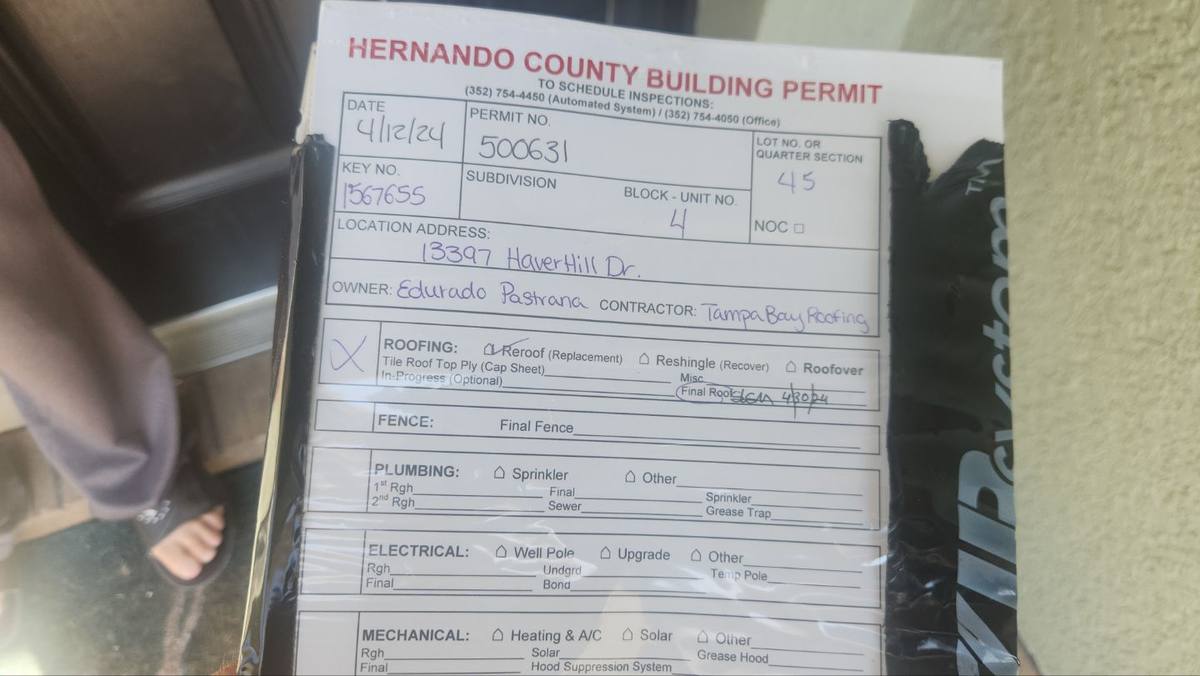 HERNANDO COUNTY BUILDING PERMIT
TO SCHEDULE INSPECTIONS:
(352) 754-4450 (Automated System) / (352) 754-4050 (Office)
DATE
4/12/24
PERMIT NO.
500631
LOT NO. OR
QUARTER SECTION
45
KEY NO.
1567655
SUBDIVISION
BLOCK - UNIT NO.
4
NOC
LOCATION ADDRESS:
13397 HaverHill Dr.
OWNER: Edurado Pastrana CONTRACTOR: Tampa Bay Roofing
X
ROOFING: Reroof (Replacement) Reshingle (Recover) Roofover
Tile Roof Top Ply (Cap Sheet) Misc.
In-Progress (Optional) Final Roof 4/30/24
FENCE: Final Fence
PLUMBING: Sprinkler Other
1st Rgh Final Sprinkler
2nd Rgh Sewer Grease Trap
ELECTRICAL: Well Pole Upgrade Other
Rgh Undgrd Temp Pole
Final Bond
MECHANICAL: Heating & A/C Solar Other
Rgh Solar Grease Hood
Final Hood Suppression System
TM